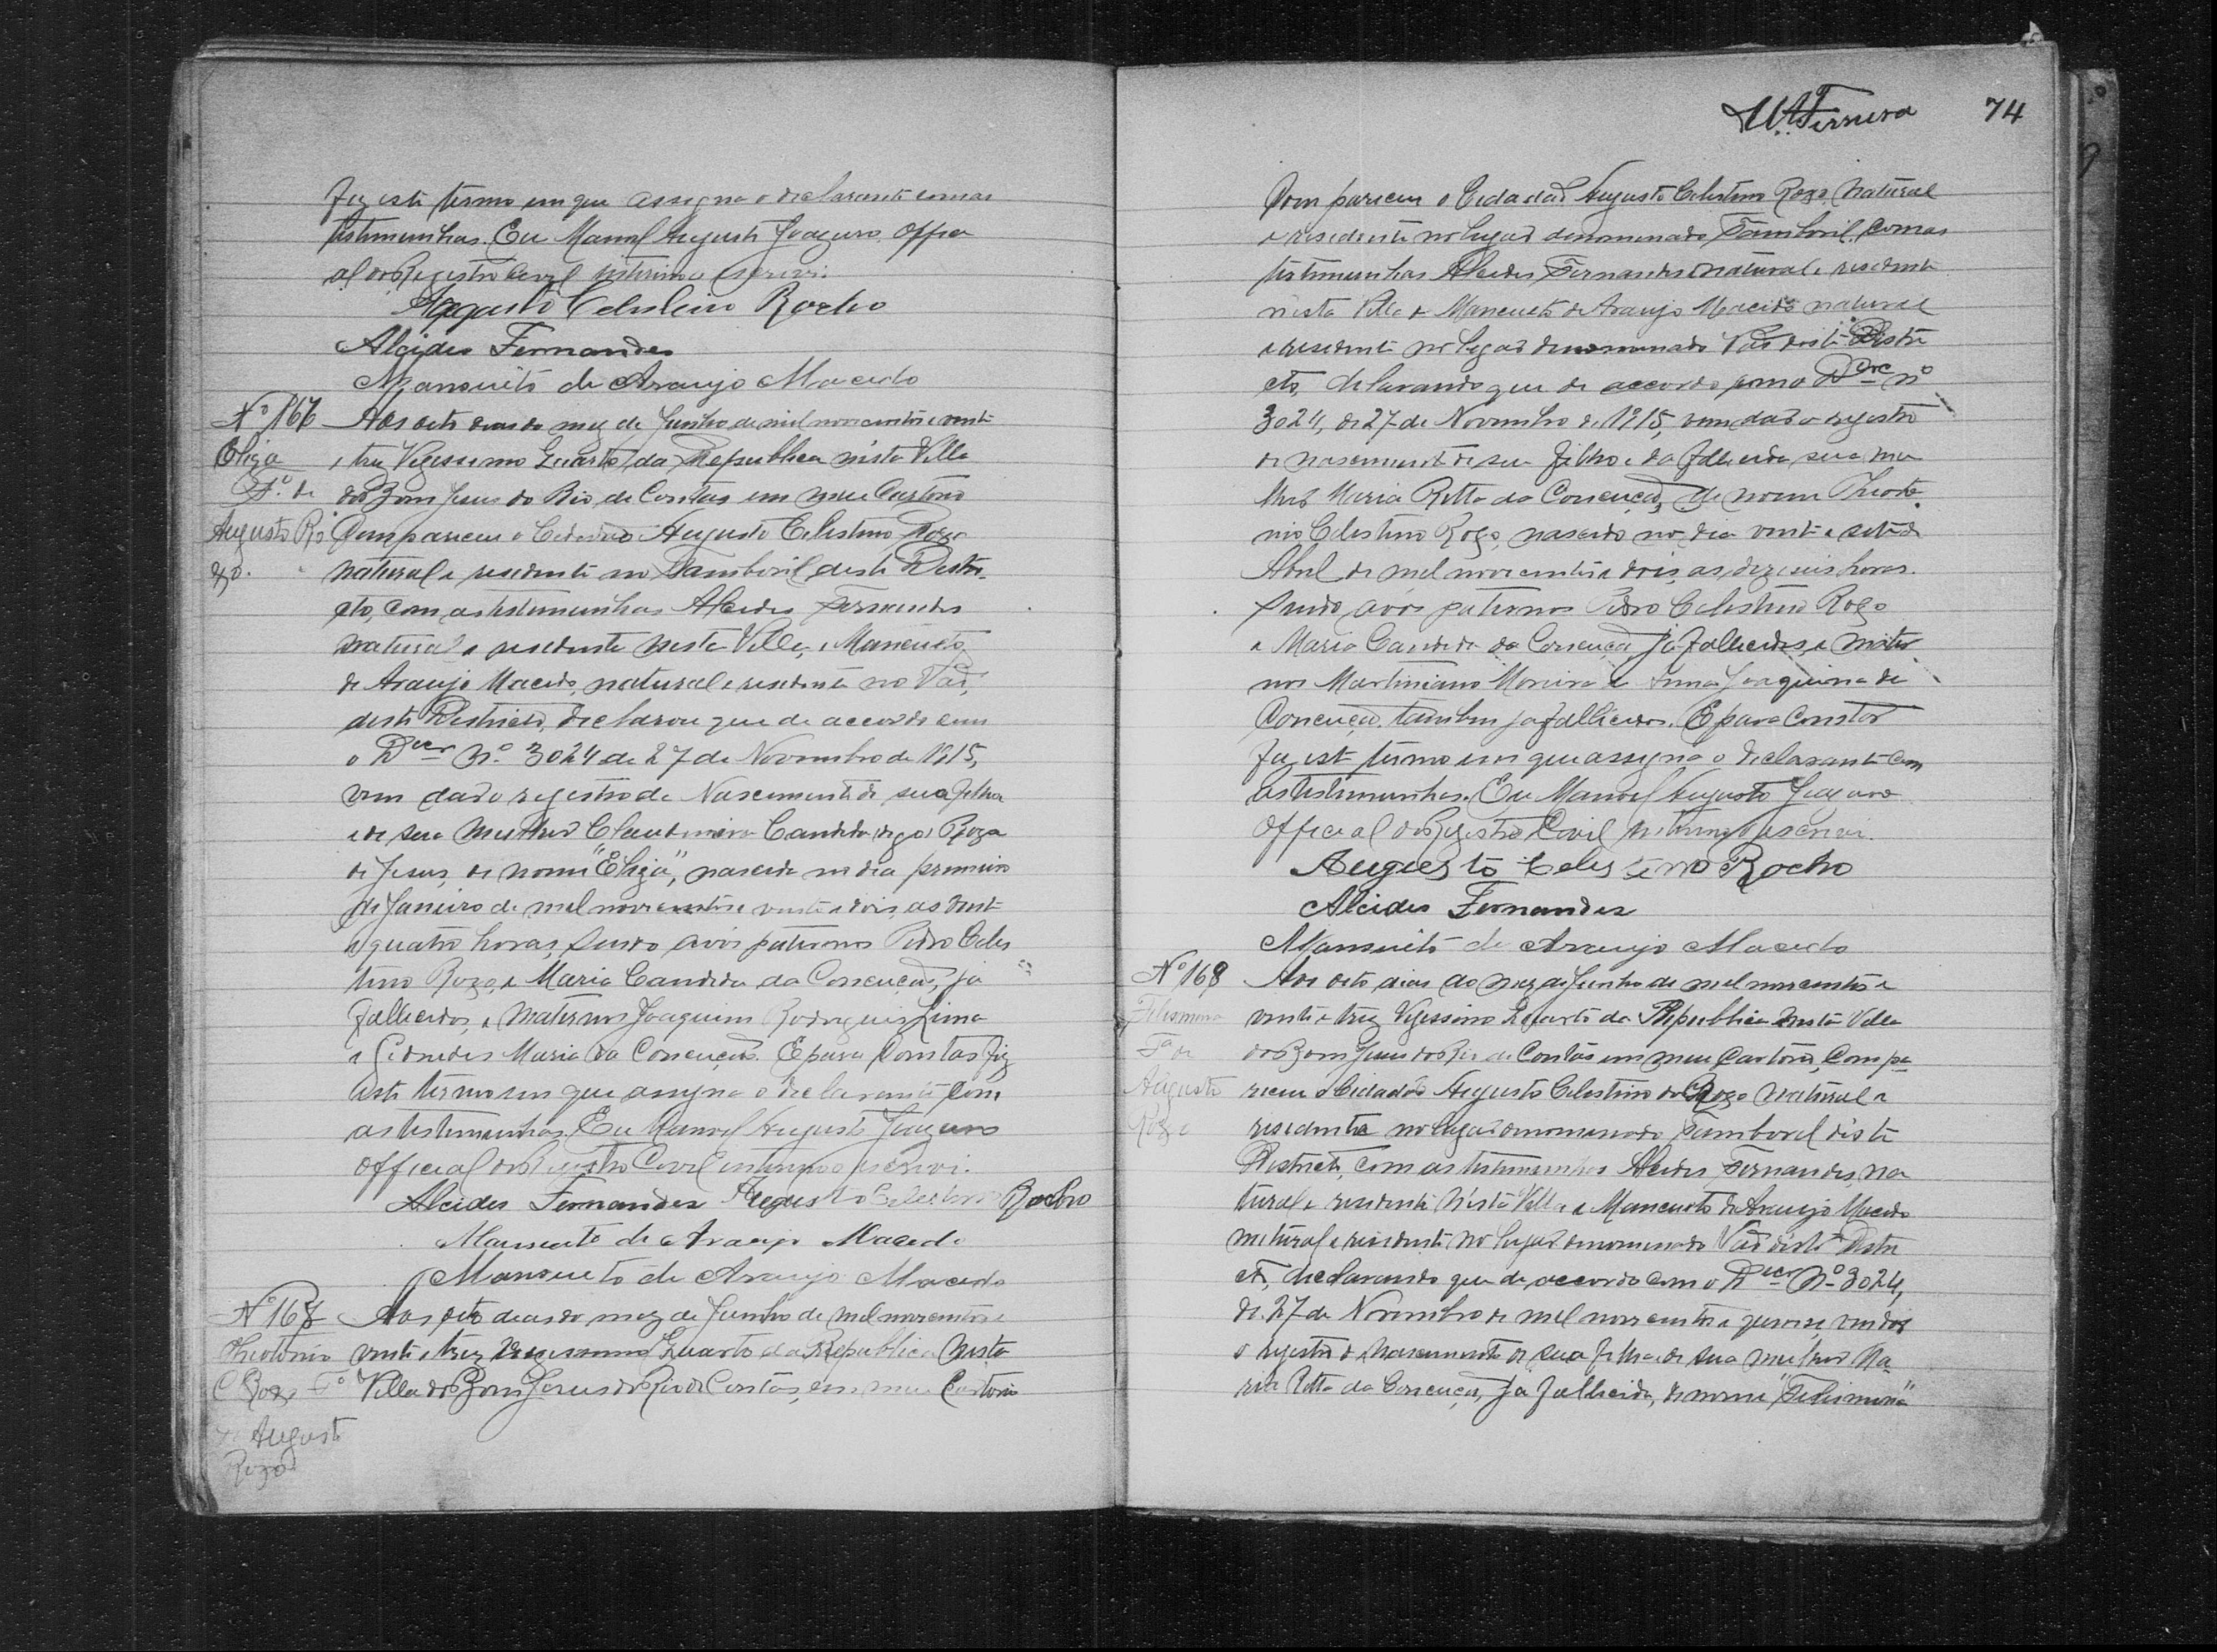 Fez este termo em que assigna o declarante com as
testemunhas. Eu Manoel Augusto Joazeiro Offici
al do Registro Civil interino escrevi.
Augusto Celestino Rocho
Alcides Fernandes
Mansuêto de Araujo Macedo
Nº 166
Eliza
de
Augusto Ro
zo.
Aos oito dias do mez de Junho de mil novecentos e vinte
e trez Vigessimo Quarto da Republica nesta Villa
do Bom Jesus do Rio de Contas em meu Cartorio
Compareceu o Cidadão Augusto Celestino Rozo
natural e residente no Tamboril deste Destri
cto, com as testemunhas Alcides Fernandes
natural e residente nesta Villa, e Mancueto
de Araujo Macedo, natural e residente no Vão,
deste Destricto, declarou que de accordo com
o Decr Nº 3024 de 27 de Novembro de 1915,
vem dar o registro de Nascimento de sua filha
e de sua mulher Claudimira Candida digo Roza
de Jesus, de nome "Eliza", nascida no dia primeiro
de Janeiro de mil novecentos e vinte e dois, as vint
e quatro horas, sendo avós paternos Pedro Celes
tino Rozo, e Maria Candida da Conceução, já
fallecidos, e maternos Joaquim Rodrigues Lima
e Maria da Conceução. E para Constar fiz
este termo em que assigna o declarante com
as testemunhas. Eu Manoel Augusto Joazeiro
Official do Registro Civil interino escrevi.
Alcides Fernandes Augusto Celestino Rocho
Mansueto de Araujo Macedo
Mansueto de Araujo Macedo
Nº 167
Theotonio
C Rozo Fº
de Augusto
Rozo
Aos oito dias do mez de Junho de mil novecentos e
vinte e trez Vigessimo Quarto da Republica Nesta
Villa do Bom Jesus do Rio de Contas, em meu Cartorio
Ferreira 74
Compareceu o Cidadão Augusto Celestino Rozo, Natural
e residente no lugar denominado Tamboril, com as
testemunhas Alcides Fernandes natural e residente
nesta Villa e Mancueto de Araujo Macedo natural
e residente no lugar denominado Vão deste Destri
cto, declarando que de accordo com o Decre nº
3024, de 27 de Novembro de 1915, vem dar o registro
de nascimento de seu filho e da fallecida sua mu
lher Maria Ritta da Conceução, de nome Theoto
nio Celestino Rozo, nascido no dia vinte e sete de
Abril de mil novecentos e dois, as dezeseis horas.
Sendo avós paternos Pedro Celestino Rozo
e Maria Candida da Conceução já fallecidos, e mater
nos Martiniano Moreira e Anna Joaquina de
Conceução, tambem já fallecidos. E para Constar
fez este termo em que assigna o declarante com
as testemunhas. Eu Manoel Augusto Joazeiro
Official do Registro Civil interino escrevi.
Augusto Celestino Rocho
Alcides Fernandes
Mansuêto de Araujo Macedo
Nº 168
Felismina
Fª de
Augusto
Rozo
Aos oito dias do mez de Junho de mil novecentos e
vinte e trez Vigessimo Quarto da Republica Nesta Villa
do Bom Jesus do Rio de Contas em meu Cartorio, Compa
receu o Cidadão Augusto Celestino do Rozo natural e
residente no lugar denominado Tamboril deste
Destricto, com as testemunhas Alcides Fernandes, na
tural e residente Nesta Villa e Mancueto de Araujo Macedo
natural e residente no lugar denominado Vão deste Destri
cto, declarando que de accordo com o Decr Nº 3024,
de 27 de Novembro de mil novecentos e quinse, vem dar
o registro de Nascimento de sua filha e de sua mulher Ma
ria Ritta da Conceução, já fallecida, de nome "Felismina"